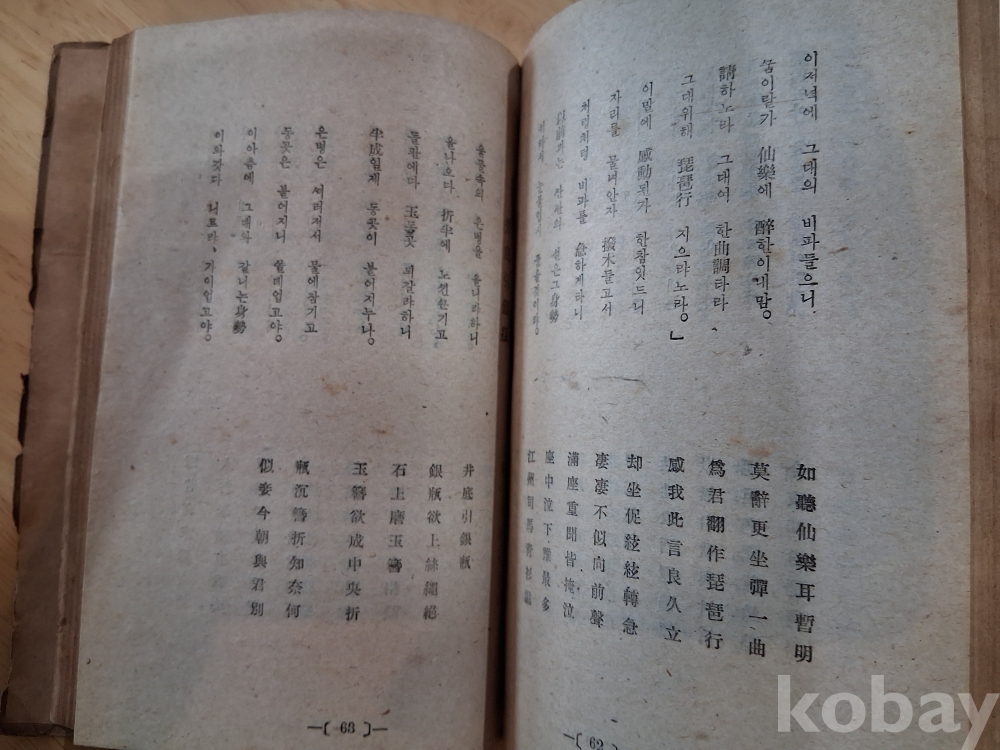 이저녁에 그대의 비파들으니
숨이랄가 仙樂에 醉한이내맘。
請하노라 그대여 한曲調타라、
그대위해 琵琶行 지으랴노라。」
이말에 感動되가 한참잇드니
자리를 물녀안자 撥木들고서
처럼 비파를 急하게타니
如聽仙樂耳暫明
莫辭更坐彈一曲
爲君翻作琵琶行
感我此言良久立
却坐促絃絃轉急
凄凄不似向前聲
滿座重聞皆掩泣
座中泣下誰最多
江州司馬靑衫濕
—〔 62 〕
우물속의 은병을 올니랴하니
올나오다 折半에 노껀끈기고
돌판에다 玉등곳 되갈랴하니
半成일제 등곳이 불어지누나。
은병은 써러져서 물에잠기고
등곳은 불어지니 쓸데업고야。
이아츰에 그대와 갈니는身勢
이와갓다 니르랴、가이업고야。
井底引銀瓶
銀瓶欲上絲繩絕
石上磨玉簪
玉簪欲成中央折
瓶沉簪折知奈何
似妾今朝與君別
—〔 63 〕—
kobay